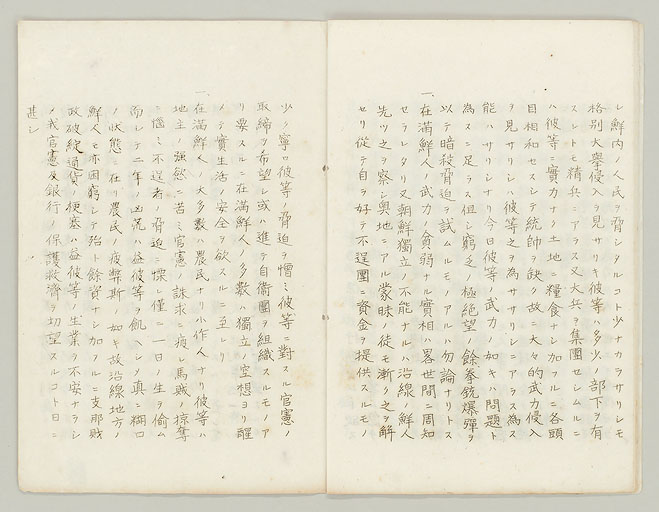 シ鮮内ノ人民ヲ脅シタルコト少ナカラサリシモ
格別大挙侵入ヲ見サリキ彼等ハ多少ノ部下ヲ有
スレトモ精兵ニアラス又大兵ヲ集團セシムルニ
ハ彼等ニ實力ナク土地ニ糧食ナシ加フルニ各頭
目相和セスシテ統帥ヲ缺ク故ニ大々的武力侵入
ヲ見サリシハ彼等之ヲ為ササリシニアラス為ス
能ハサリシナリ今日彼等ノ武力ノ如キハ問題ト
為スニ足ラス但シ窮乏ノ極絶望ノ餘拳銃爆彈ヲ
以テ暗殺脅迫ヲ試ムルモノアルハ勿論ナリトス
一、在滿鮮人ノ武力ノ貧弱ナル實相ハ畧世間ニ周知
セラレタリ又朝鮮獨立ノ不能ナルハ沿線ノ鮮人
先ツ之ヲ察シ奥地ニアル蒙昧ノ徒モ漸ク之ヲ解
セリ從テ自ラ好テ不逞團ニ資金ヲ提供スルモノ
少ク寧ロ彼等ノ脅迫ヲ憎ミ彼等ニ對スル官憲ノ
取締ヲ希望シ或ハ進テ自衛團ヲ組織スルモノア
リ要スルニ在滿鮮人ノ多數ハ獨立ノ空想ヨリ醒
メテ實生活ノ安全ヲ欲スルニ至レリ
一、在滿鮮人ノ大多數ハ農民ナリ小作人ナリ彼等ハ
地主ノ強慾ニ苦ミ官憲ノ誅求ニ痩レ馬賊ノ掠奪
ニ悩ミ不逞者ノ脅迫ニ懍レ僅ニ一日ノ生ヲ偸ム
而シテ二年ノ凶荒ハ益彼等ヲ飢ヘシメ真ニ糊口
ノ状態ニ在リ農民ノ疲弊斯ノ如キ故沿線地方ノ
鮮人モ亦困窮シテ殆ト餘資ナシ加フルニ支那財
政破綻通貨ノ梗塞ハ益彼等ノ生業ヲ不安ナラシ
メ我官憲及銀行ノ保護救濟ヲ切望スルコト日ニ
甚シ